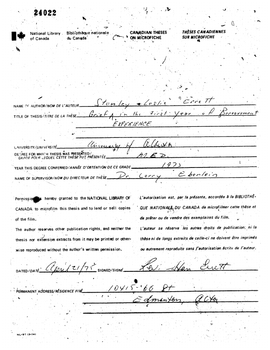 24022
National Library of Canada
Bibliothèque nationale du Canada
CANADIAN THESES ON MICROFICHE
THÈSES CANADIENNES SUR MICROFICHE
NAME OF AUTHOR/NOM DE L'AUTEUR Stanley Leslie
TITLE OF THESIS/TITRE DE LA THÈSE in the First Year of
EXPERIENCE
UNIVERSITY/UNIVERSITÉ University of Alberta
DEGREE FOR WHICH THESIS WAS PRESENTED/
GRADE POUR LEQUEL CETTE THÈSE FUT PRÉSENTÉE M.ED.
YEAR THIS DEGREE CONFERRED/ANNÉE D'OBTENTION DE CE GRADE 1975
NAME OF SUPERVISOR/NOM DU DIRECTEUR DE THÈSE Dr Larry Eberlein
Permission is hereby granted to the NATIONAL LIBRARY OF
CANADA to microfilm this thesis and to lend or sell copies
of the film.
The author reserves other publication rights, and neither the
thesis nor extensive extracts from it may be printed or other-
wise reproduced without the author's written permission.
L'autorisation est, par la présente, accordée à la BIBLIOTHÈ-
QUE NATIONALE DU CANADA de microfilmer cette thèse et
de prêter ou de vendre des exemplaires du film.
L'auteur se réserve les autres droits de publication; ni la
thèse ni de longs extraits de celle-ci ne doivent être imprimés
ou autrement reproduits sans l'autorisation écrite de l'auteur.
DATED/DATÉ April 21/75 SIGNED/SIGNÉ
PERMANENT ADDRESS/RÉSIDENCE FIXE 10415-66 St
Edmonton, Alta